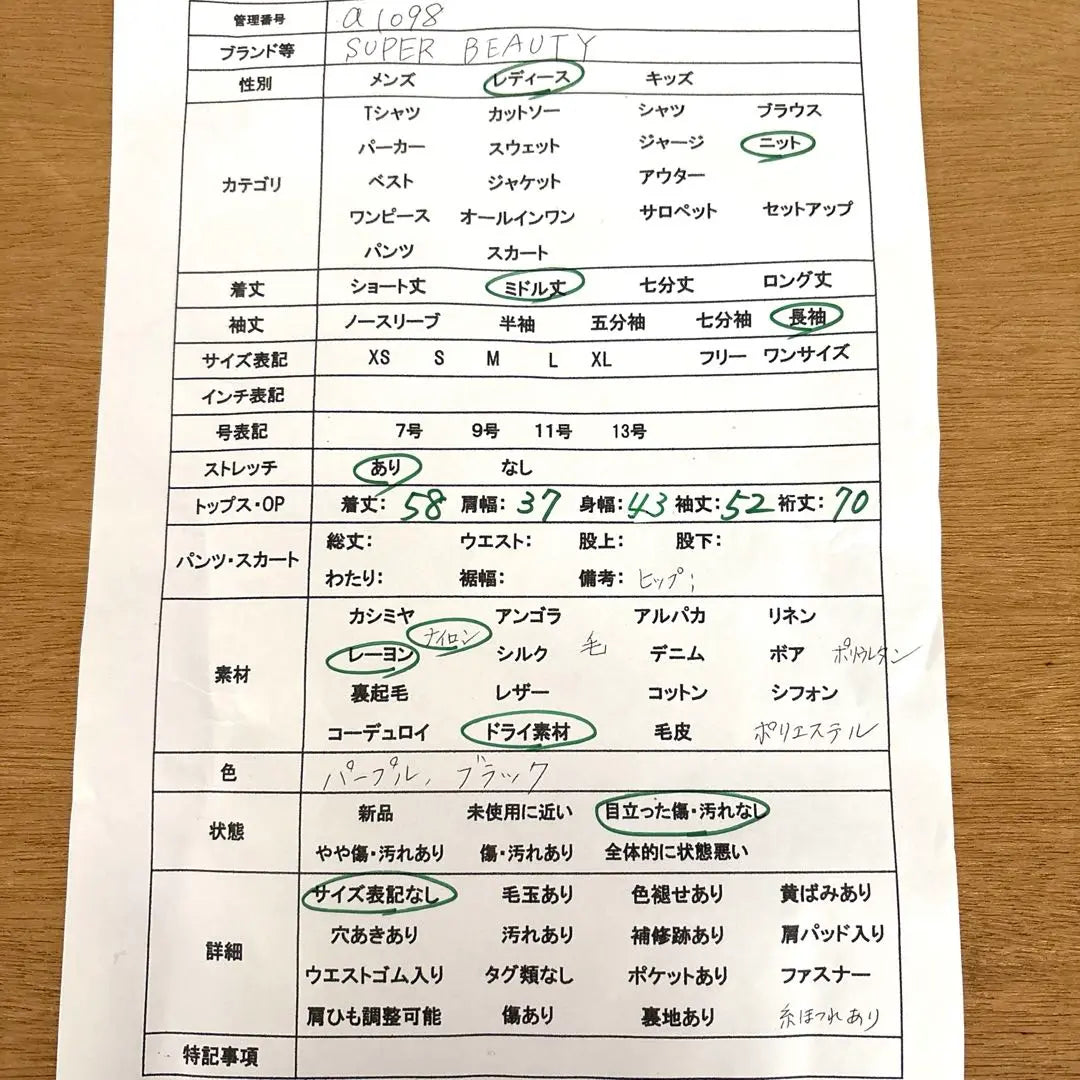 管理番号 a1098
ブランド等 SUPER BEAUTY
性別 メンズ レディース キッズ
カテゴリ Tシャツ カットソー シャツ ブラウス
パーカー スウェット ジャージ ニット
ベスト ジャケット アウター
ワンピース オールインワン サロペット セットアップ
パンツ スカート
着丈 ショート丈 ミドル丈 七分丈 ロング丈
袖丈 ノースリーブ 半袖 五分袖 七分袖 長袖
サイズ表記 XS S M L XL フリー ワンサイズ
インチ表記
号表記 7号 9号 11号 13号
ストレッチ あり なし
トップス・OP 着丈: 58 肩幅: 37 身幅: 43 袖丈: 52 裄丈: 70
パンツ・スカート 総丈: ウエスト: 股上: 股下:
わたり: 裾幅: 備考: ヒップ;
素材 カシミヤ アンゴラ アルパカ リネン
ナイロン
レーヨン シルク 毛 デニム ボア ポリウレタン
裏起毛 レザー コットン シフォン
コーデュロイ ドライ素材 毛皮 ポリエステル
色 パープル、ブラック
状態 新品 未使用に近い 目立った傷・汚れなし
やや傷・汚れあり 傷・汚れあり 全体的に状態悪い
詳細 サイズ表記なし 毛玉あり 色褪せあり 黄ばみあり
穴あきあり 汚れあり 補修跡あり 肩パッド入り
ウエストゴム入り タグ類なし ポケットあり ファスナー
肩ひも調整可能 傷あり 裏地あり 糸ほつれあり
特記事項